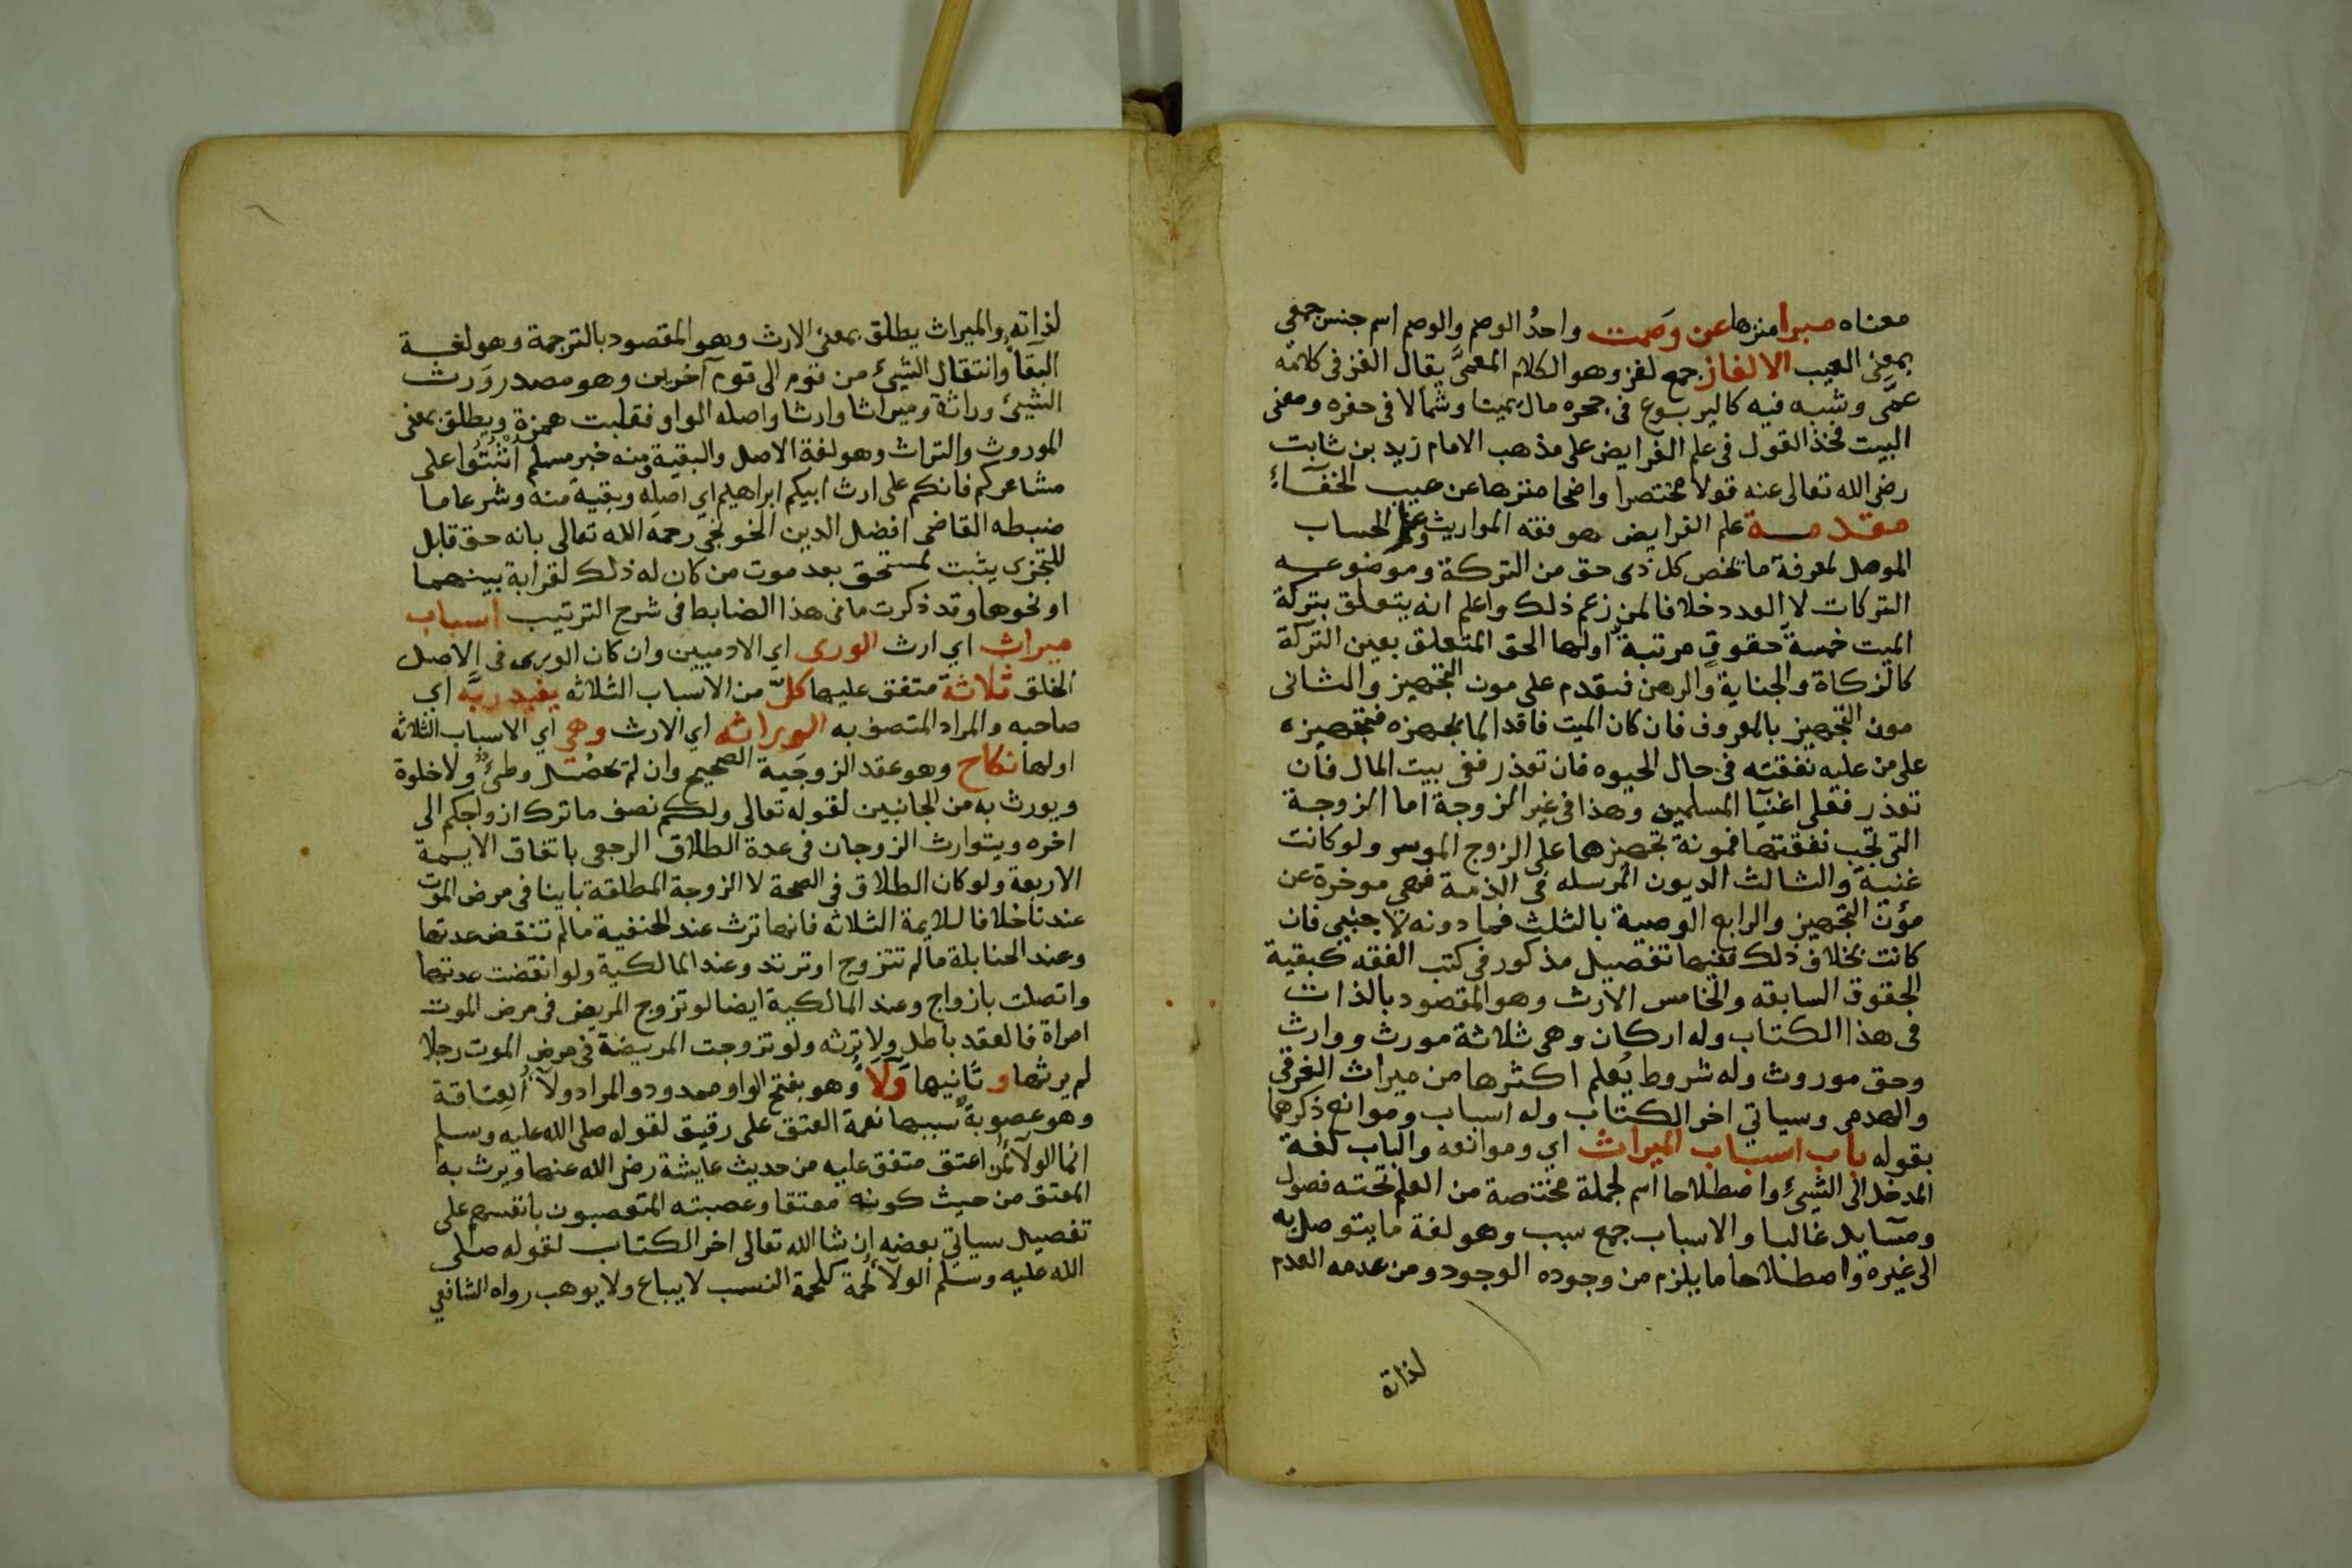 معناه مبرا منزها عن وصمت واحدُ الوصم والوصم اسم جنس جمعي
بمعنى العيب الالغاز جمع لغز وهو الكلام المعمَّى يقال الغز في كلامه
عمَّى وشبه فيه كاليربوع في جحره مال يمينا وشمالا في حفره ومعنى
البيت فخذ القول في علم الفرايض على مذهب الامام زيد بن ثابت
رضى الله تعالى عنه قولا مختصرا واضحا منزها عن عيب الخفآء
مقدمة علم الفرايض هو فقه المواريث وعلم الحساب
الموصل لمعرفة ما يخص كل ذى حق من التركة وموضوعه
التركات لا العدد خلافا لمن زعم ذلك واعلم انه يتعلق بتركة
الميت خمسة حقوقٍ مرتبة اولها الحق المتعلق بعين التركة
كالزكاة والجناية والرهن فيقدم على مون التجهيز والثانى
مون التجهيز بالمعروف فان كان الميت فاقدا لما يجهزه فتجهيزه
على من عليه نفقته في حال الحيوه فان تعذر ففى بيت المال فان
تعذر فعلى اغنيآ المسلمين وهذا في غير الزوجة اما الزوجة
التي تجب نفقتها فمونة تجهيزها على الزوج الموسر ولو كانت
غنية والثالث الديون المرسله في الذمة فهي موخرة عن
مؤن التجهيز والرابع الوصية بالثلث فما دونه لاجنبي فان
كانت بخلاف ذلك ففيها تفصيل مذكور في كتب الفقه كبقية
الحقوق السابقه والخامس الارث وهو المقصود بالذات
في هذا الكتاب وله اركان وهي ثلاثة مورث ووارث
وحق موروث وله شروط يُعلم اكثرها من ميراث الغرقى
والهدمى وسياتي اخر الكتاب وله اسباب وموانع ذكرهما
بقوله باب اسباب الميراث اي وموانعه والباب لغة
المدخل الى الشيء واصطلاحا اسم لجملة مختصة من العلم تحته فصول
ومسايل غالبا والاسباب جمع سبب وهو لغة ما يتوصل به
الى غيره واصطلاحا ما يلزم من وجوده الوجود ومن عدمه العدم
لذاته
لذاته والميراث يطلق بمعنى الارث وهو المقصود بالترجمة وهو لغة
البقآ وانتقال الشيئ من قوم الى قوم آخرين وهو مصدر وَرث
الشيئ وراثة وميراثا وارثا واصله الواو فقلبت همزة ويطلق بمعنى
الموروث والتراث وهو لغة الاصل والبقية ومنه خبر مسلم اثبتُوا على
مشاعركم فانكم على ارث ابيكم ابراهيم اي اصله وبقية منه وشرعا ما
ضبطه القاضى افضل الدين الخونجى رحمه الله تعالى بانه حق قابل
للتجزى يثبت لمستحق بعد موت من كان له ذلك لقرابة بينهما
او نحوها وقد ذكرت ما فى هذا الضابط فى شرح الترتيب اسباب
ميراث اي ارث الورى اي الادميين وان كان الورى في الاصل
الخلق ثلاثة متفق عليها كلٌّ من الاسباب الثلاثه يفيد ربَّه اي
صاحبه والمراد المتصف به الوراثه اي الارث وهي اي الاسباب الثلاثه
اولها نكاح وهو عقد الزوجية الصحيح وان لم يحصُل وطئٌ ولا خلوة
ويورث به من الجانبين لقوله تعالى ولكم نصف ما ترك ازواجكم الى
اخره ويتوارث الزوجان في عدة الطلاق الرجعى باتفاق الايمة
الاربعة ولو كان الطلاق في الصحة لا الزوجة المطلقة باينا في مرض الموت
عندنا خلافا للايمة الثلاثه فانها ترث عند الحنفية مالم تنقض عدتها
وعند الحنابلة مالم تتزوج او ترتد وعند المالكية ولو انقضت عدتها
واتصلت بازواج وعند المالكية ايضا لو تزوج المريض في مرض الموت
امراة فالعقد باطل ولا ترثه ولو تزوجت المريضة في مرض الموت رجلا
لم يرثها و ثانيها وَلآ وهو بفتح الواو ممدود والمراد ولآ العتاقة
وهو عصوبة سببها نعمة المعتق على رقيق لقوله صلى الله عليه وسلم
انما الولآ لمن اعتق متفق عليه من حديث عايشة رضى الله عنها ويرث به
المعتق من حيث كونه معتقا وعصبته المتعصبون بانفسهم على
تفصيل سياتي بعضه ان شا الله تعالى اخر الكتاب لقوله صلى
الله عليه وسلم الولآ لحمة كلحمة النسب لا يباع ولا يوهب رواه الشافعي